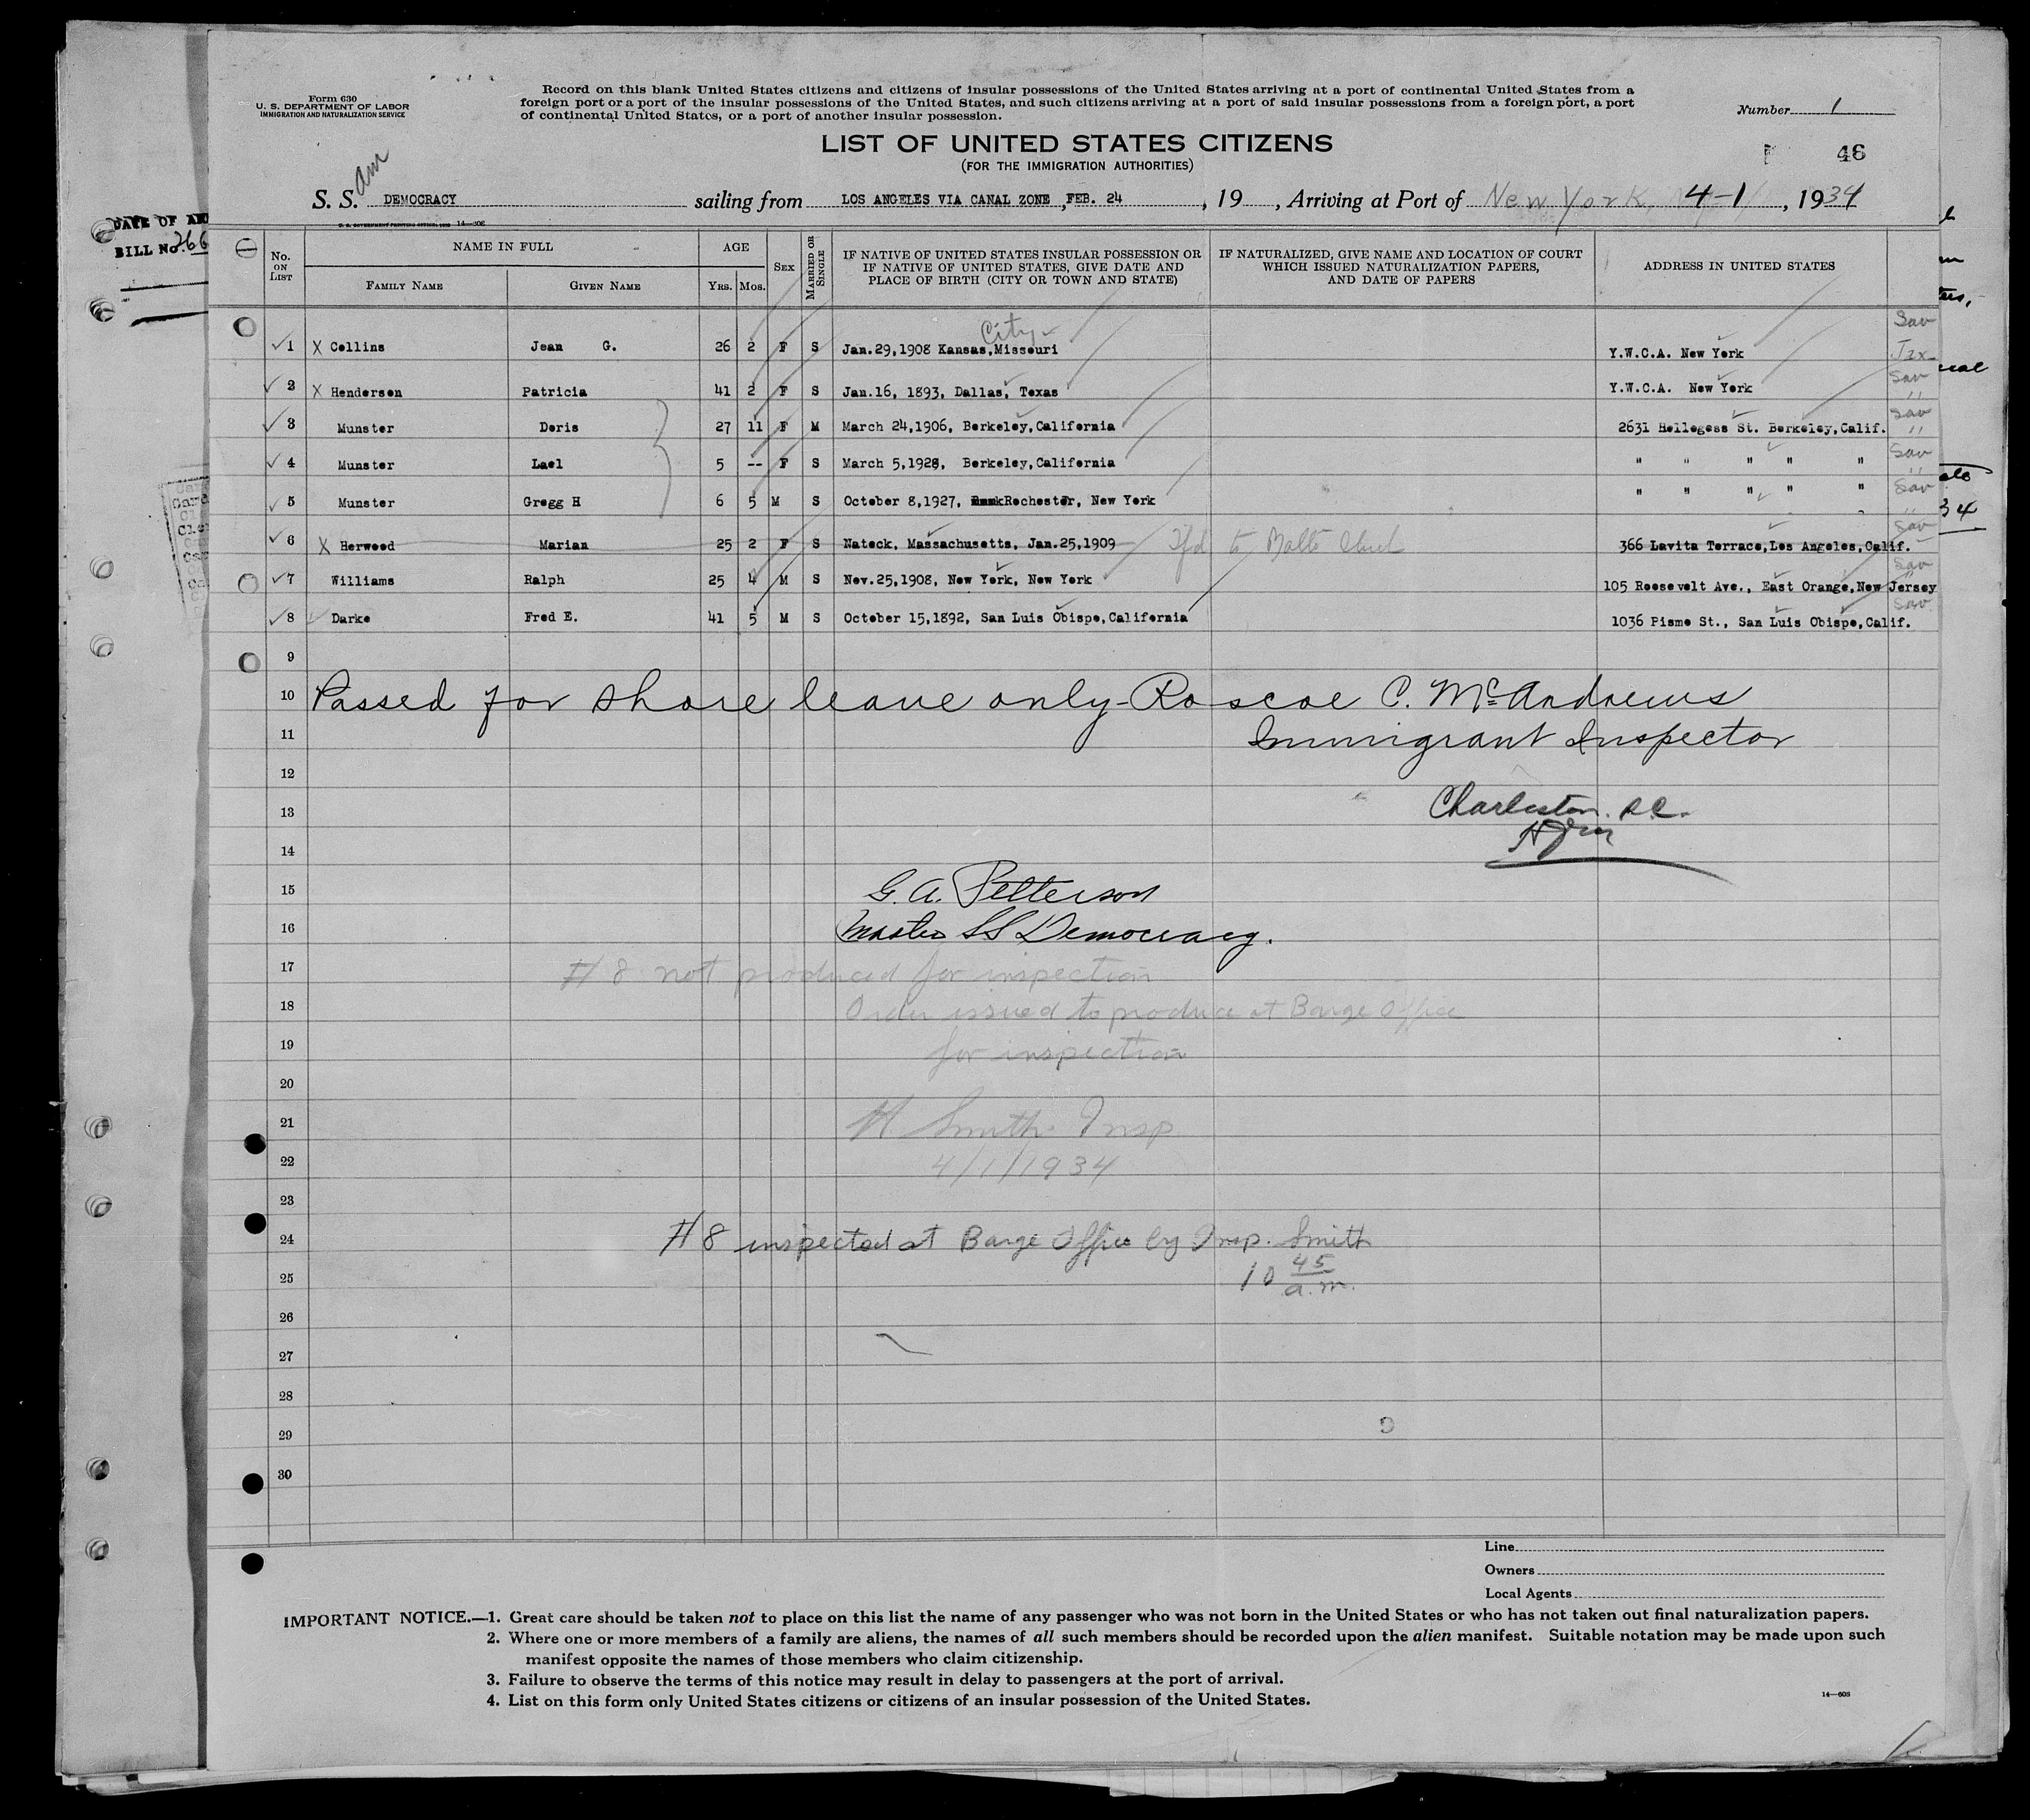 Form 630
U. S. DEPARTMENT OF LABOR
IMMIGRATION AND NATURALIZATION SERVICE
Record on this blank United States citizens and citizens of insular possessions of the United States arriving at a port of continental United States from a
foreign port or a port of the insular possessions of the United States, and such citizens arriving at a port of said insular possessions from a foreign port, a port
of continental United States, or a port of another insular possession.
Number 1
LIST OF UNITED STATES CITIZENS
(FOR THE IMMIGRATION AUTHORITIES)
46
Am
S. S. DEMOCRACY sailing from LOS ANGELES VIA CANAL ZONE ,FEB. 24 , 19 , Arriving at Port of New York, 4-1 , 1934
DATE OF
BILL No. 266
No. ON LIST NAME IN FULL AGE SEX MARRIED OR SINGLE IF NATIVE OF UNITED STATES INSULAR POSSESSION OR IF NATIVE OF UNITED STATES, GIVE DATE AND PLACE OF BIRTH (CITY OR TOWN AND STATE) IF NATURALIZED, GIVE NAME AND LOCATION OF COURT WHICH ISSUED NATURALIZATION PAPERS, AND DATE OF PAPERS ADDRESS IN UNITED STATES
FAMILY NAME GIVEN NAME YRS. MOS.
City
1 X Collins Jean G. 26 2 F S Jan.29,1908 Kansas,Missouri Y.W.C.A. New York
2 X Henderson Patricia 41 2 F S Jan.16, 1893, Dallas, Texas Y.W.C.A. New York
3 Munster Doris 27 11 F M March 24,1906, Berkeley,California 2631 Hellegess St. Berkeley,Calif.
4 Munster Lael 5 -- F S March 5,1928, Berkeley,California " " " " "
5 Munster Gregg H 6 5 M S October 8,1927, Rochester, New York " " " " "
6 X Herwood Marian 25 2 F S Nateck, Massachusetts, Jan.25,1909 366 Lavita Terrace,Los Angeles,Calif.
7 Williams Ralph 25 4 M S Nov.25,1908, New York, New York 105 Roosevelt Ave., East Orange,New Jersey
8 Darke Fred E. 41 5 M S October 15,1892, San Luis Obispo,California 1036 Pismo St., San Luis Obispo,Calif.
9
10 Passed for shore leave only - Roscoe C. McAndrews
11 Immigrant Inspector
12
13 Charleston. S.C.
14
15 G. A. Petterson
16 Master SS Democracy.
17 #8 not produced for inspection
18 Order issued to produce at Barge Office
19 for inspection
20
21 H. Smith Insp
22 4/1/1934
23
24 #8 inspected at Barge Office by Insp. Smith
25 10 45 a.m.
26
27
28
29
30
Line
Owners
Local Agents
IMPORTANT NOTICE.—1. Great care should be taken not to place on this list the name of any passenger who was not born in the United States or who has not taken out final naturalization papers.
2. Where one or more members of a family are aliens, the names of all such members should be recorded upon the alien manifest. Suitable notation may be made upon such
manifest opposite the names of those members who claim citizenship.
3. Failure to observe the terms of this notice may result in delay to passengers at the port of arrival.
4. List on this form only United States citizens or citizens of an insular possession of the United States.